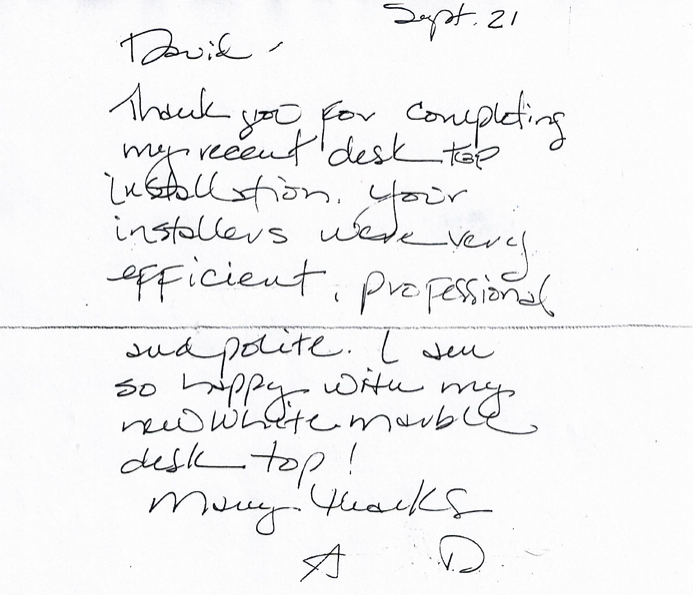 Sept. 21
David -
Thank you for completing
my recent desk top
installation. Your
installers were very
efficient, professional
and polite. I am
so happy with my
new white marble
desk top!
Many thanks
A D